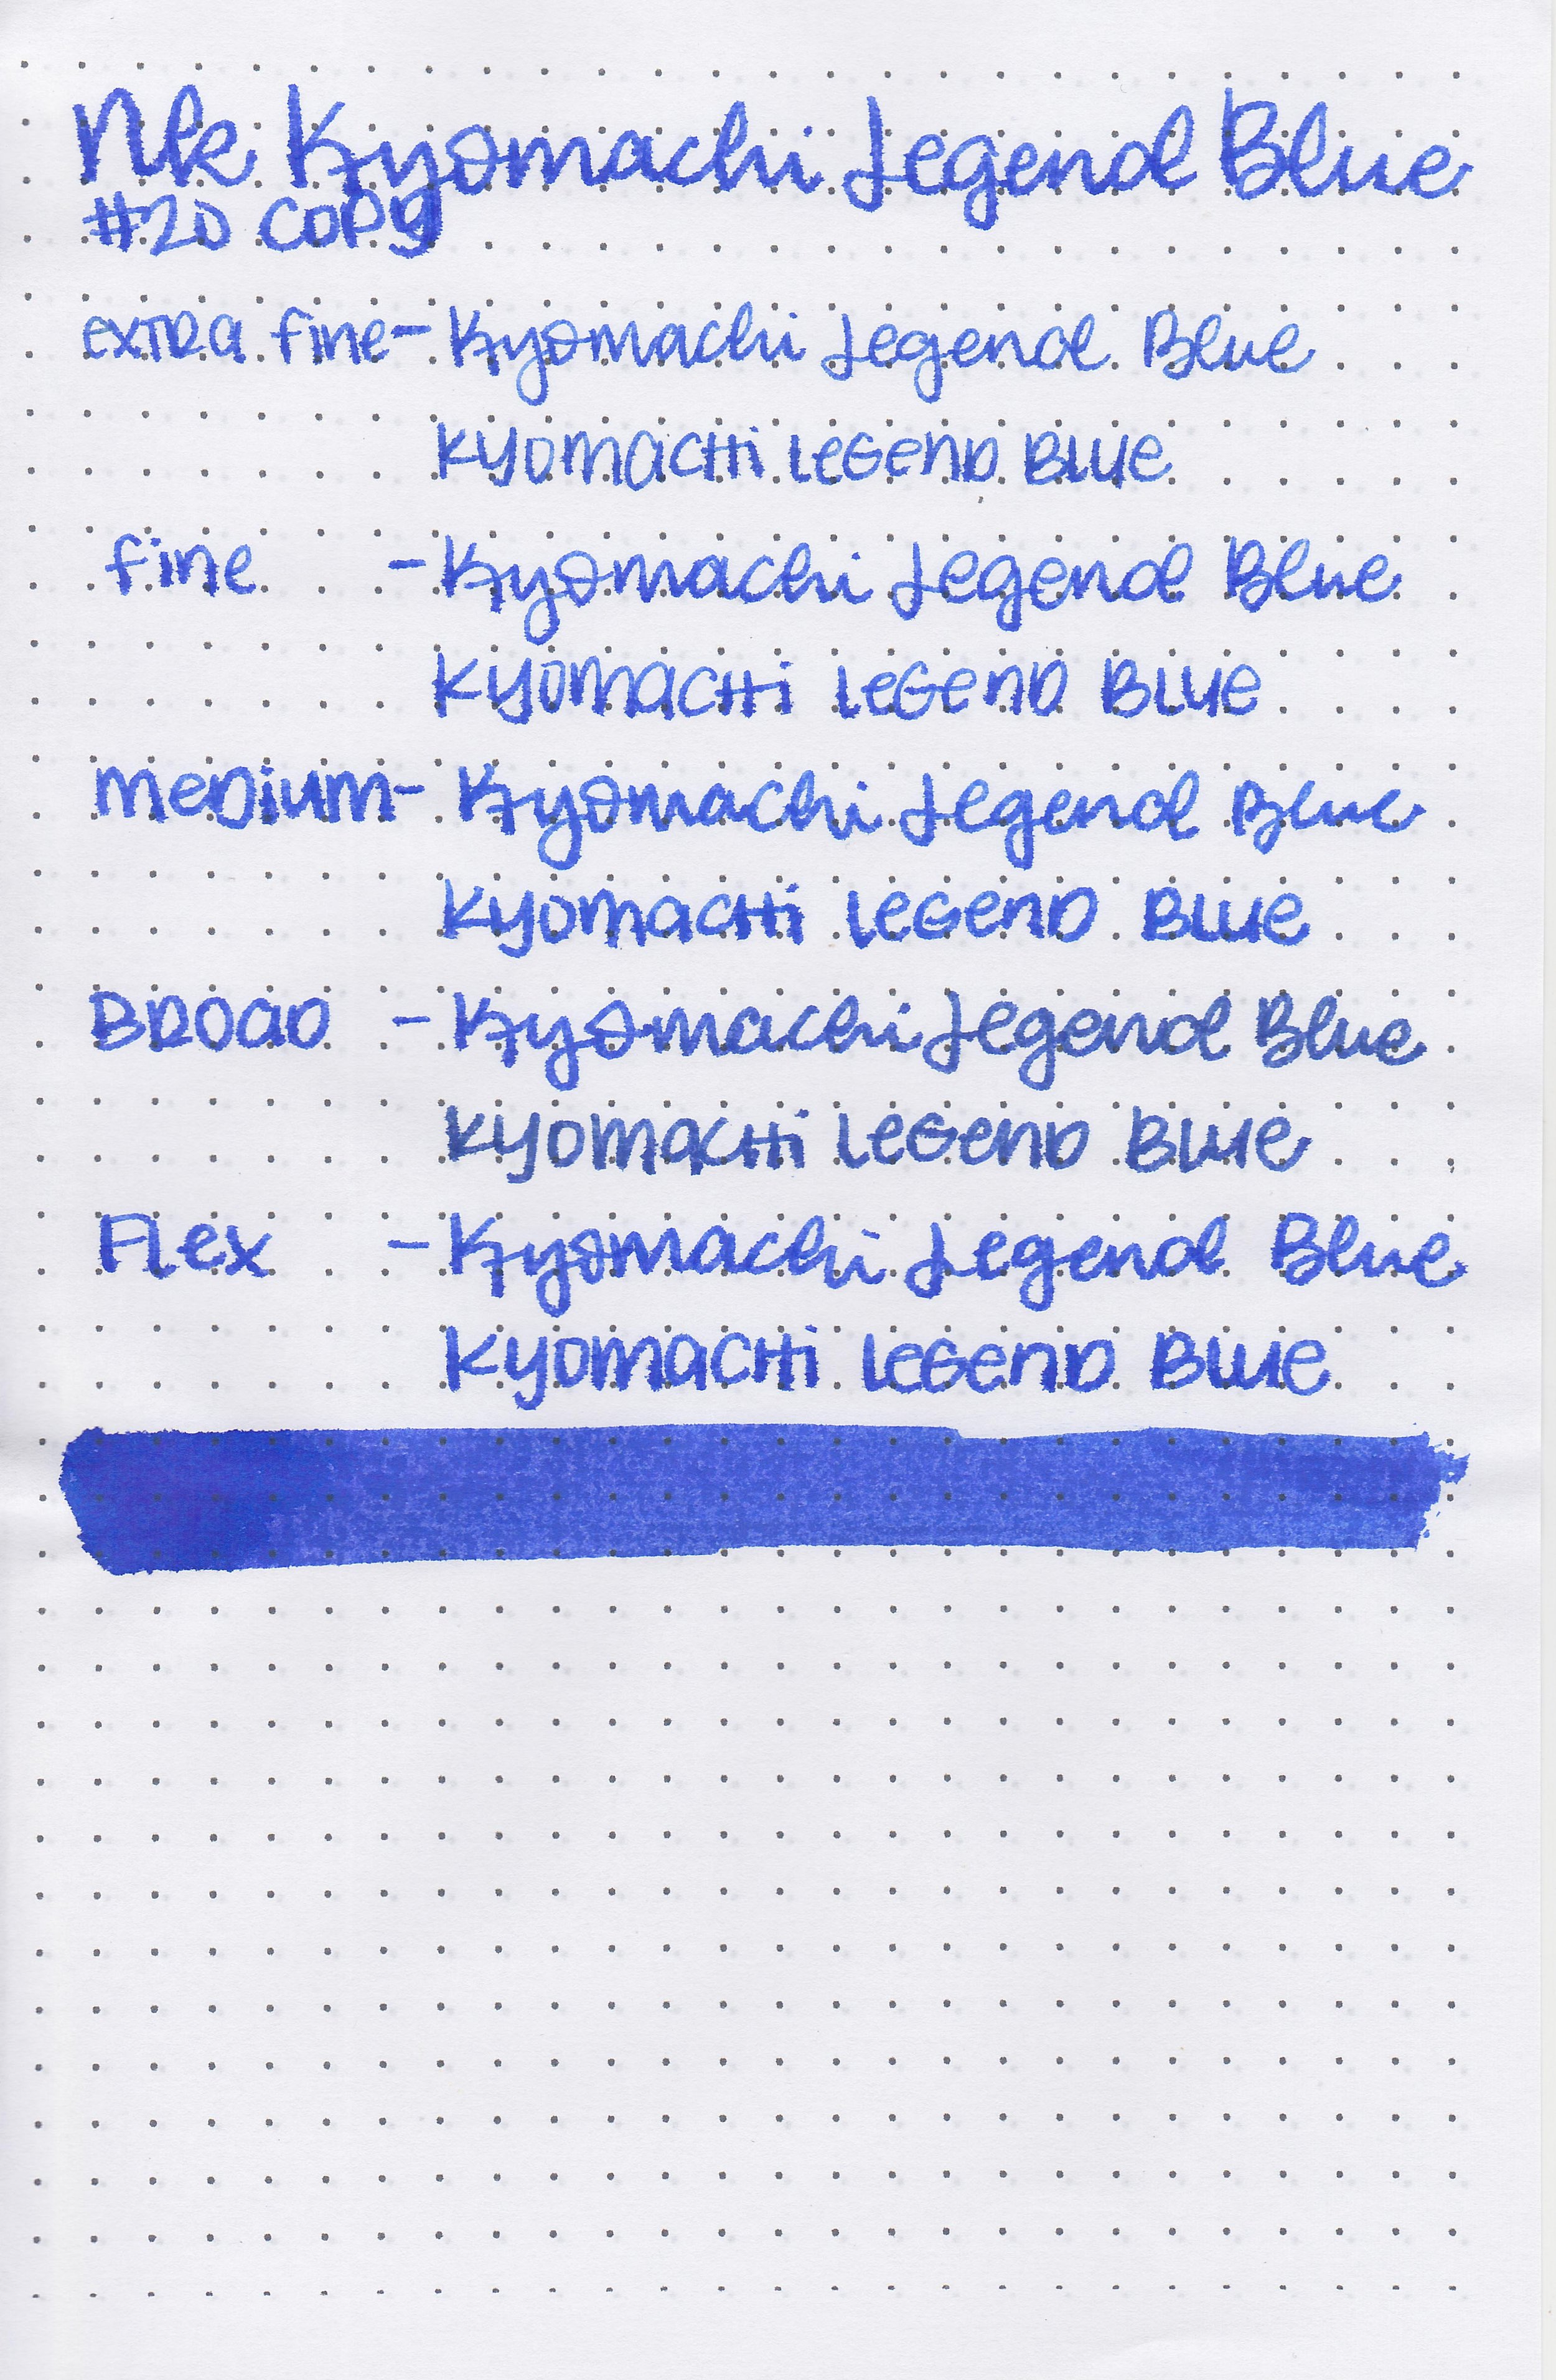 Nk Kyomachi Legend Blue
#20 COPY
extra fine - Kyomachi Legend Blue
Kyomachi Legend Blue
fine - Kyomachi Legend Blue
Kyomachi Legend Blue
medium - Kyomachi Legend Blue
Kyomachi Legend Blue
Broad - Kyomachi Legend Blue
Kyomachi Legend Blue
Flex - Kyomachi Legend Blue
Kyomachi Legend Blue